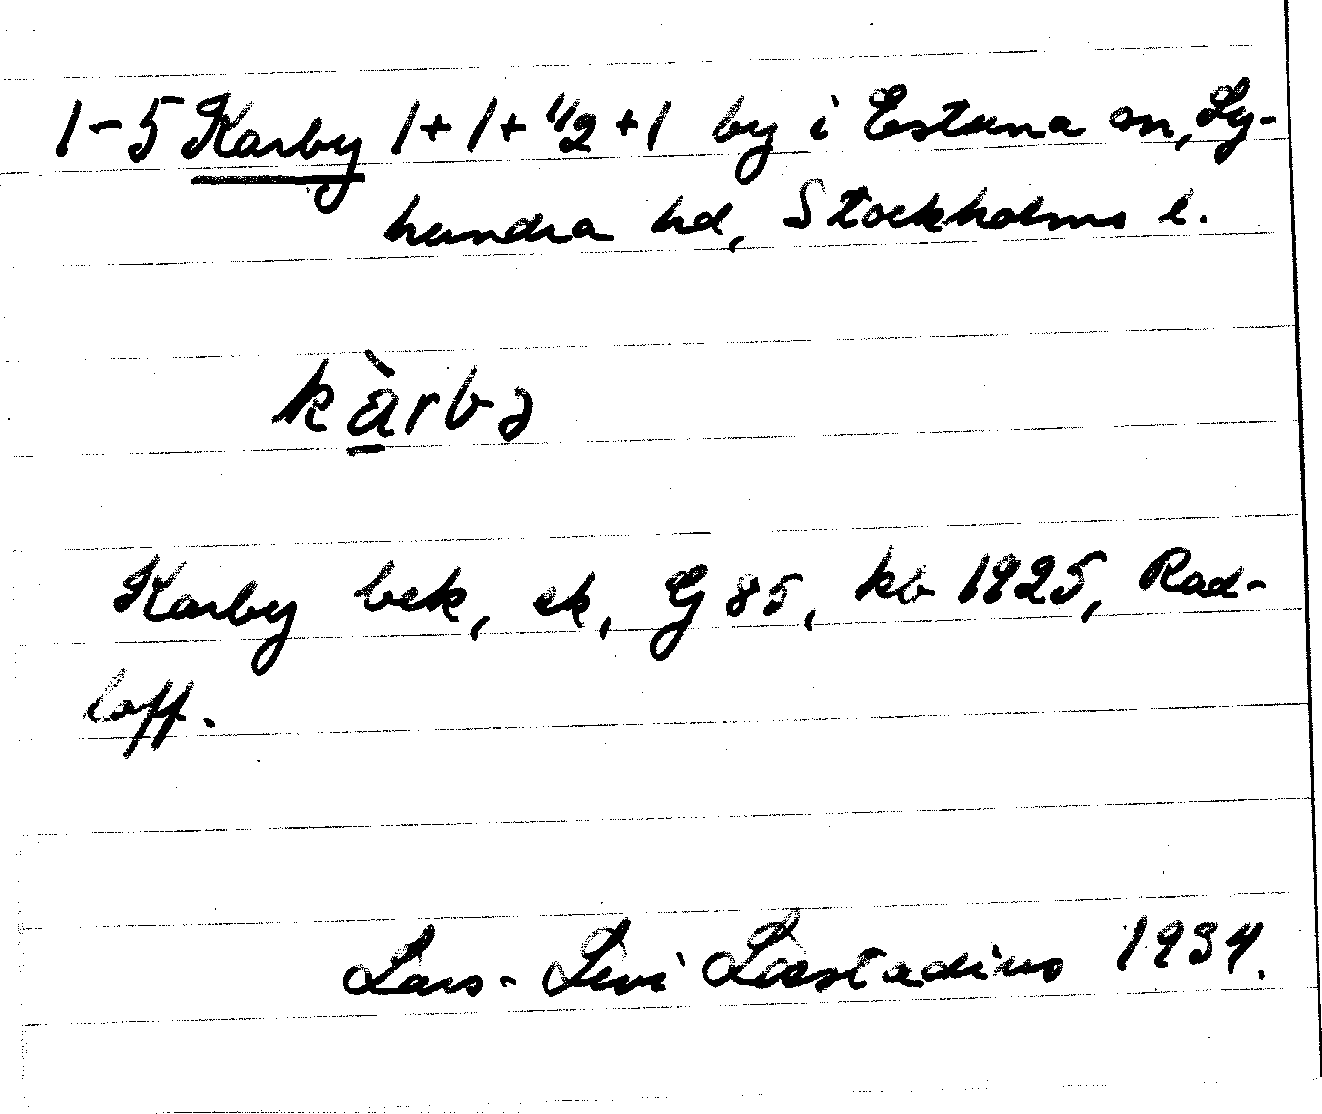 1-5 Karby 1+1+1/2+1 by i Estuna sn, Ly-
hundra hd, Stockholms l.
kàrbə
Karby bek, ek, G 85, kb 1825, Rad-
loff.
Lars-Levi Læstadius 1934.